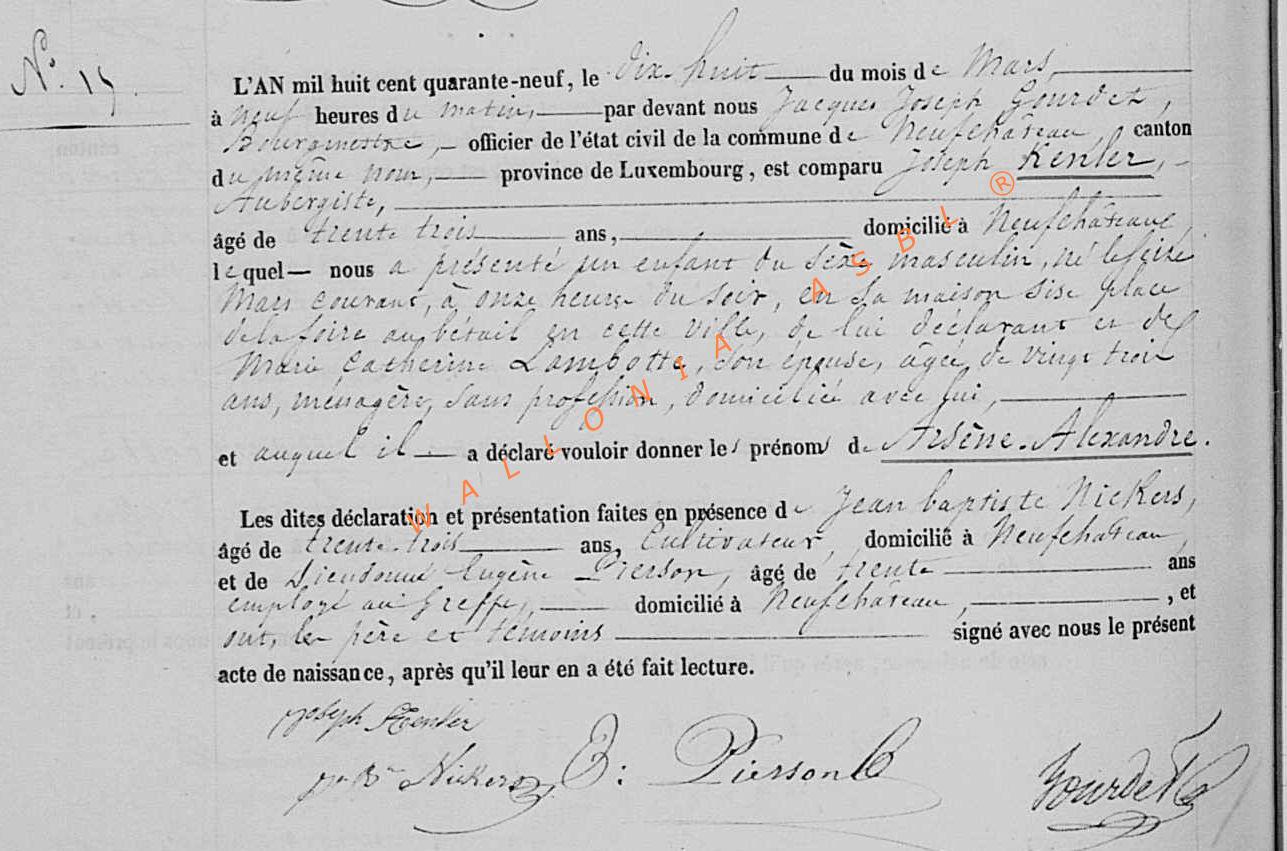 N.º 19.
L'AN mil huit cent quarante-neuf, le dix huit du mois de Mars,
à neuf heures du matin, par devant nous Jacques Joseph Gourdet,
Bourgmestre, officier de l'état civil de la commune de Neufchâteau, canton
du même nom, province de Luxembourg, est comparu Joseph Kenler,
Aubergiste,
âgé de trente trois ans, domicilié à Neufchâteau,
lequel nous a présenté un enfant du sèxe masculin, né le seize
Mars courant, à onze heures du soir, en sa maison sise place
de la foire au bétail en cette ville, de lui déclarant et de
Marie Catherine Lambotte, son épouse, âgée de vingt trois
ans, ménagère, sans profession, domiciliée avec lui,
et auquel il a déclaré vouloir donner les prénoms de Arsène-Alexandre.
Les dites déclaration et présentation faites en présence de Jean baptiste Nickers,
âgé de trente-trois ans, Cultivateur, domicilié à Neufchâteau,
et de Dieudonné Eugène Pierson, âgé de trente ans
employé au Greffe, domicilié à Neufchâteau, , et
ont, les père et témoins signé avec nous le présent
acte de naissance, après qu'il leur en a été fait lecture.
Joseph Kenler
Nickers E: Pierson Gourdet
WALLONIA ASBL ®